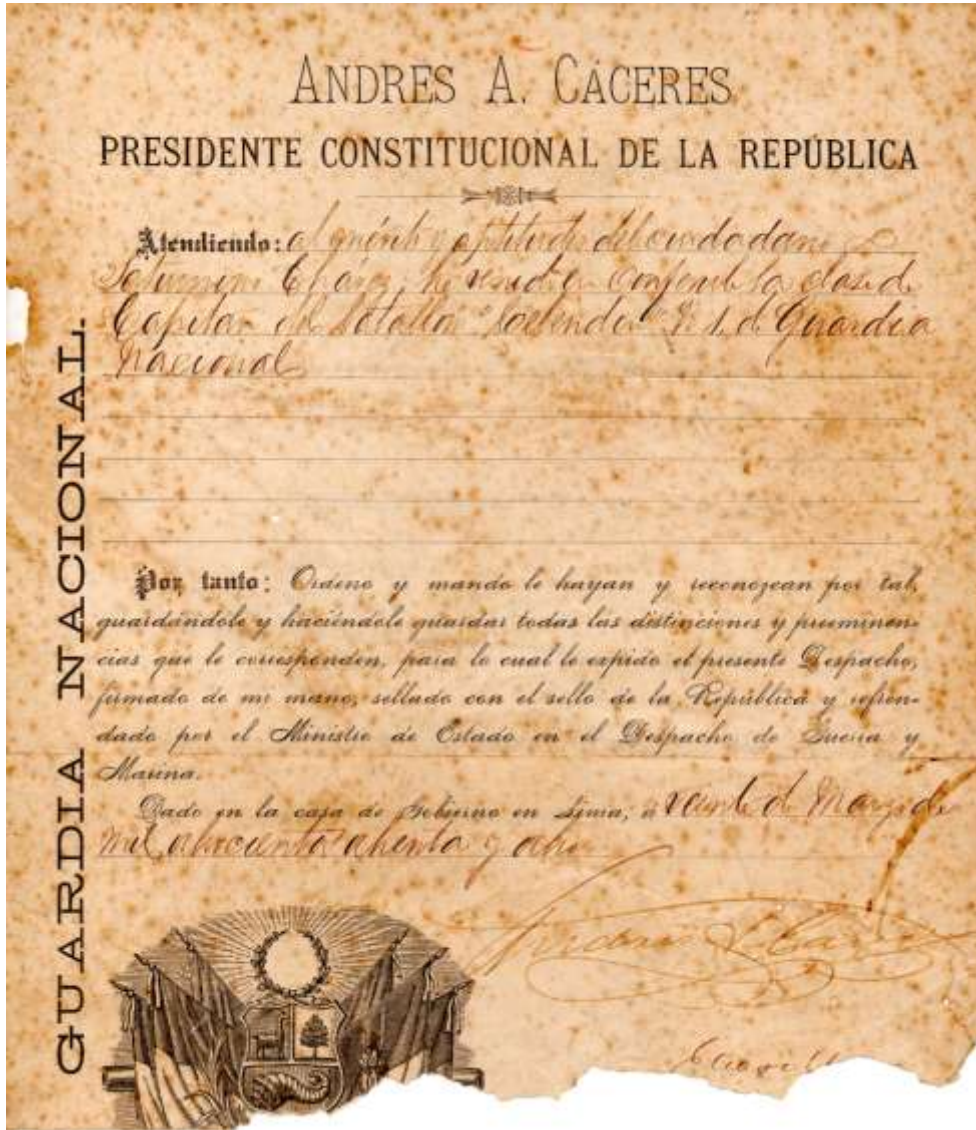 ANDRES A. CÁCERES
PRESIDENTE CONSTITUCIONAL DE LA REPÚBLICA
Atendiendo: al mérito y aptitudes del ciudadano
Chávez, he venido en conferirle la clase de
Capitan del Batallon N 1 de Guardia
Nacional
Por tanto: Ordeno y mando le hayan y reconozcan por tal,
guardándole y haciéndole guardar todas las distinciones y preeminen-
cias que le corresponden, para lo cual le expido el presente Despacho,
firmado de mi mano, sellado con el sello de la República y refren-
dado por el Ministro de Estado en el Despacho de Guerra y
Marina.
Dado en la casa de Gobierno en Lima, a veinte de Marzo de
mil ochocientos ochenta y ocho
GUARDIA NACIONAL.